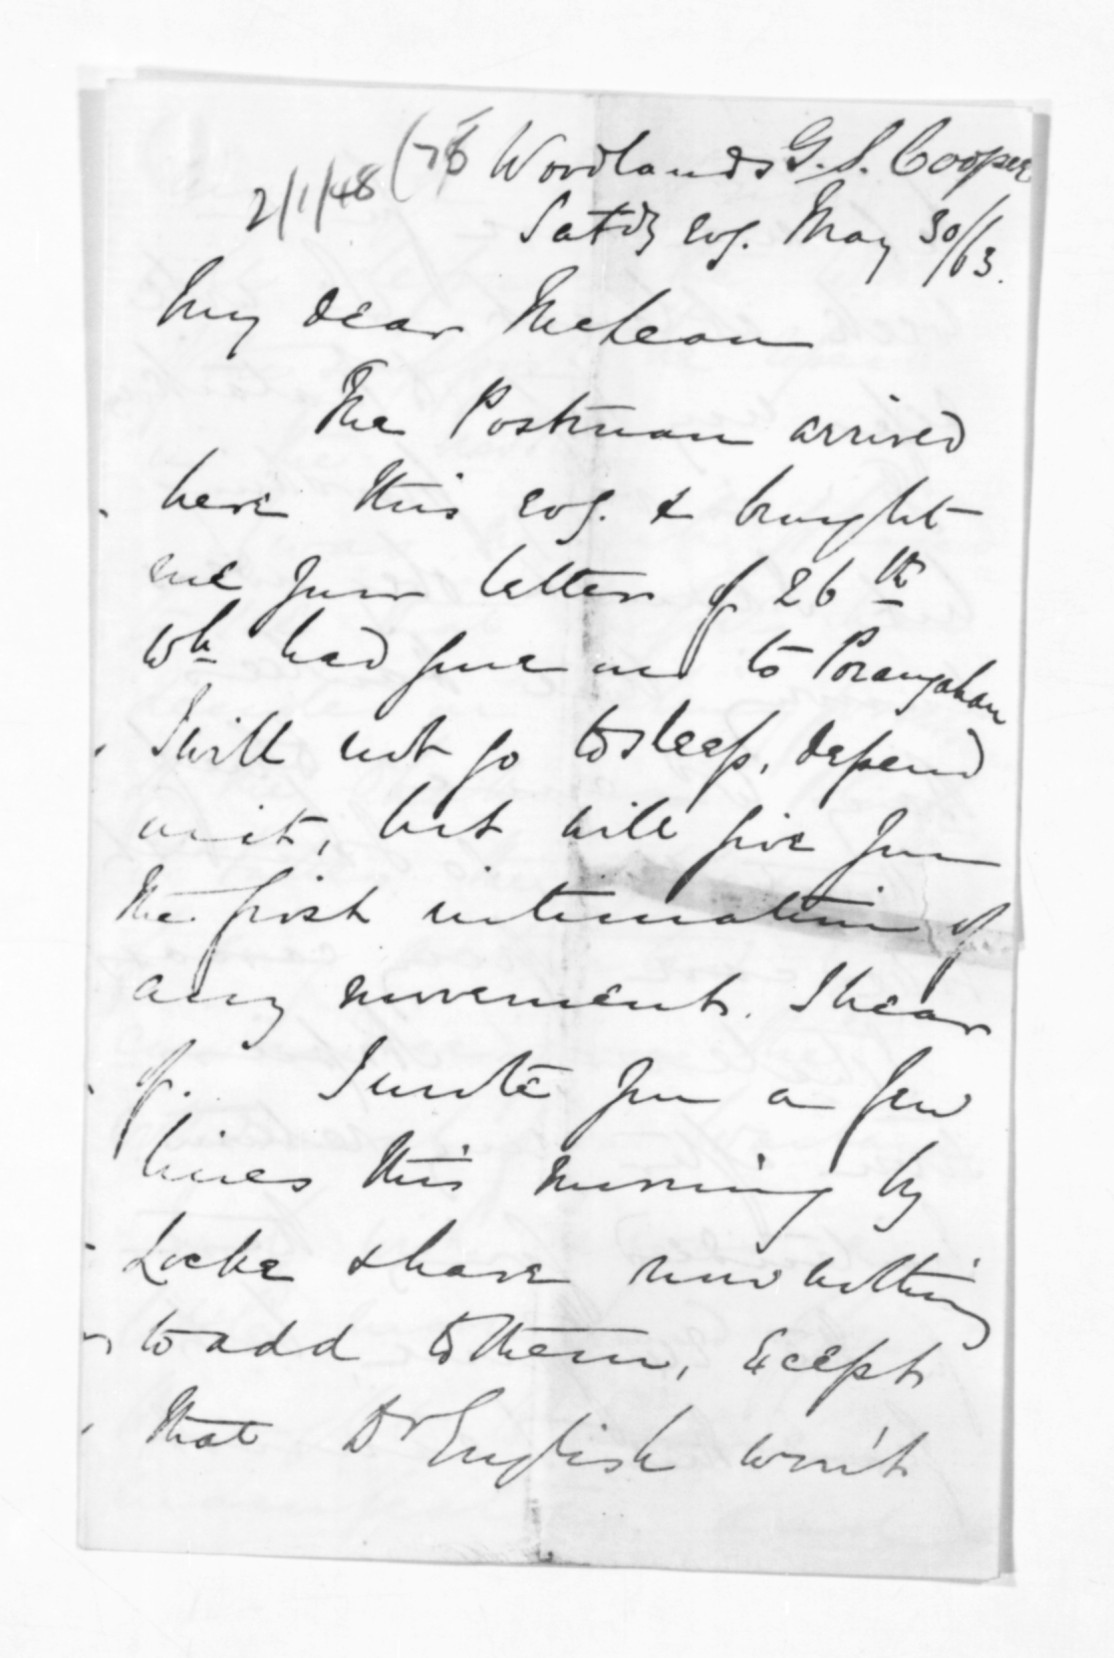 2/1/48 (76 Woodlands G. S. Cooper
Satdy evg. May 30/63.
My dear McLean
The Postman arrived
here this evg. & brought
me your letter of 26th
wh had gone on to Porangahau
I will not go to sleep, depend
on it, but will give you
the first intimation of
any movements I hear
of. I wrote you a few
lines this morning by
Locke & have now nothing
to add to them, except
that Dr English won't